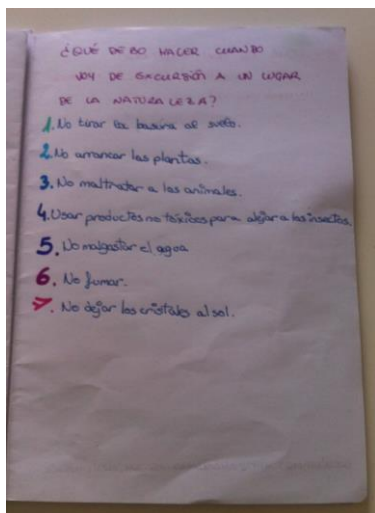 ¿QUÉ DEBO HACER CUANDO
VOY DE EXCURSIÓN A UN LUGAR
DE LA NATURALEZA?
1. No tirar la basura al suelo.
2. No arrancar las plantas.
3. No maltratar a los animales.
4. Usar productos no tóxicos para alejar a los insectos.
5. No malgastar el agua
6. No fumar.
7. No dejar los cristales al sol.